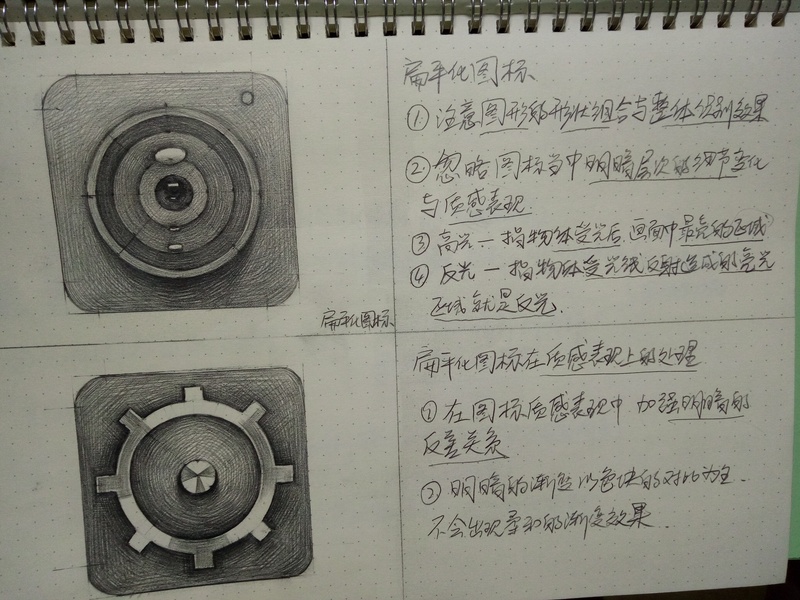 扁平化图标
① 注意图形的形状组合与整体识别效果
② 忽略图标当中明暗层次的细节变化
与质感表现.
③ 高光一 指物体受光后,画面中最亮的区域
④ 反光一 指物体受光线反射造成的亮光
区域就是反光.
扁平化图标
扁平化图标在质感表现上的处理
① 在图标质感表现中 加强明暗的
反差关系
② 明暗的渐变以色块的对比为主.
不会出现柔和的渐变效果.